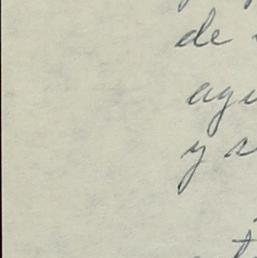 de
agu
y s
t